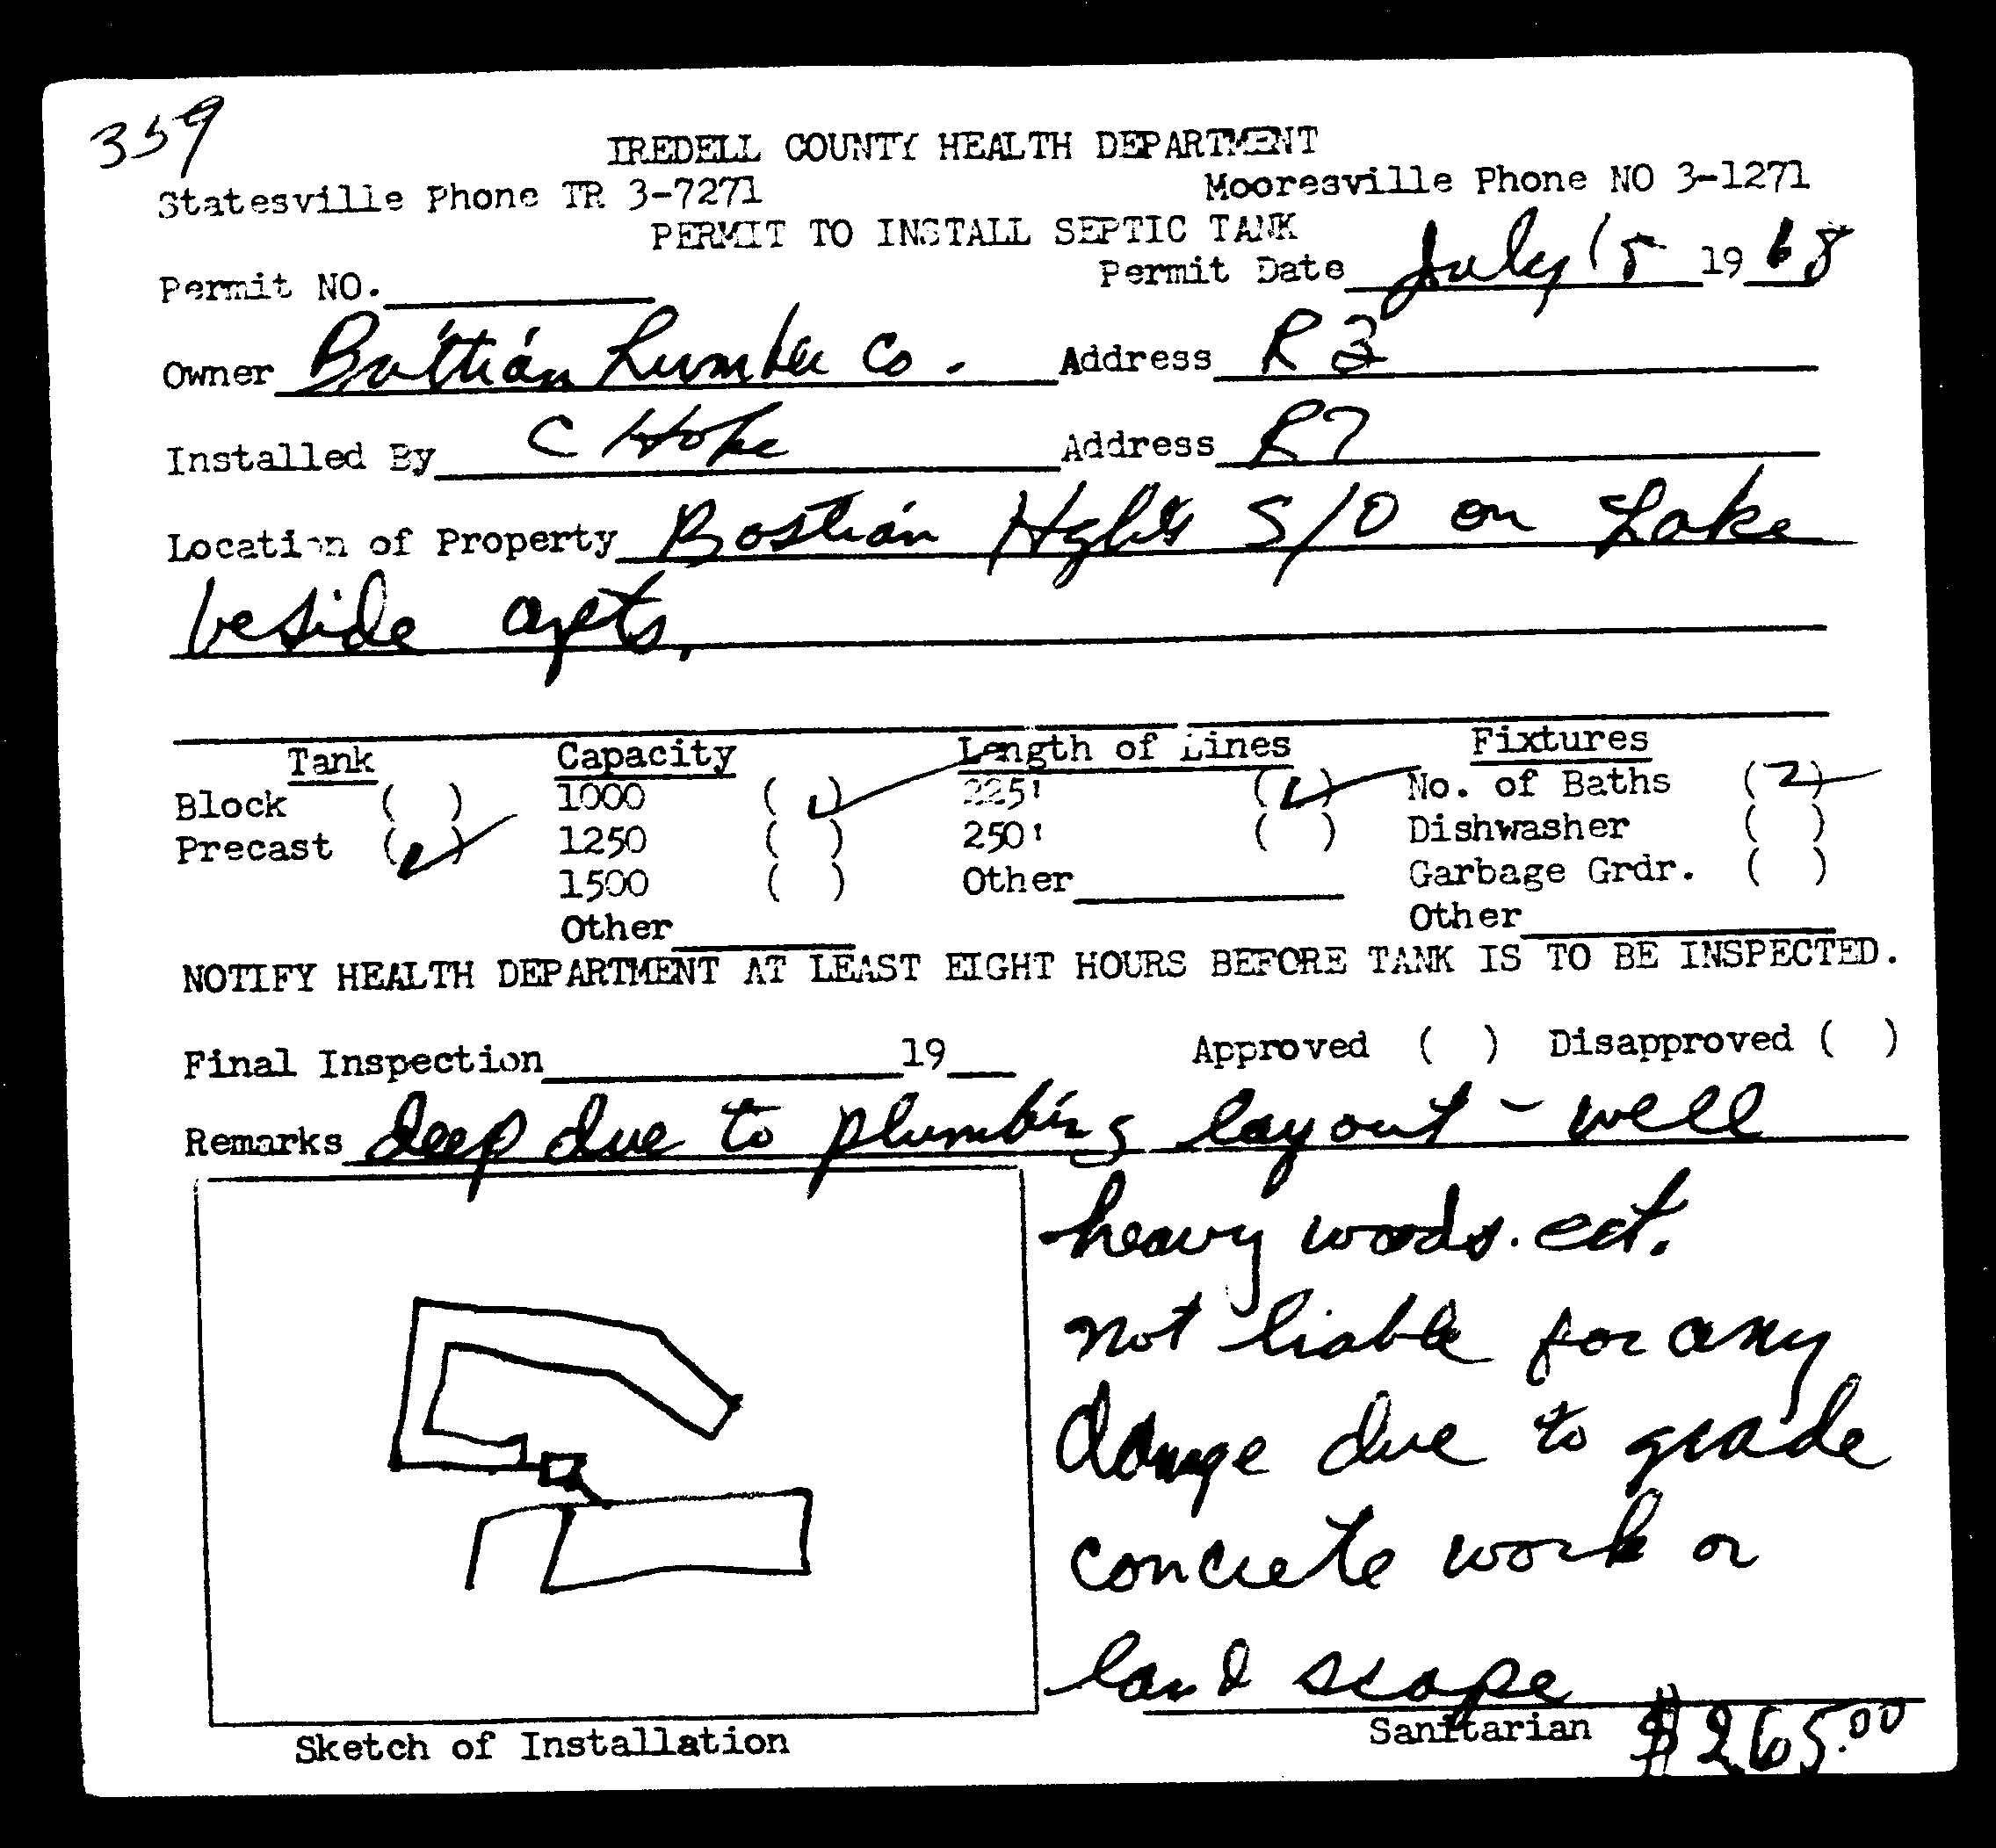 359
IREDELL COUNTY HEALTH DEPARTMENT
Statesville Phone TR 3-7271 Mooresville Phone NO 3-1271
PERMIT TO INSTALL SEPTIC TANK
Permit NO. Permit Date July 15 1968
Owner Bostian Lumber Co. Address R 3
Installed By C Hoke Address R7
Location of Property Bostian Hghts S/D on Lake
beside apts.
Tank Capacity Length of Lines Fixtures
Block ( ) 1000 (✓) 225' (✓) No. of Baths (2)
Precast (✓) 1250 ( ) 250' ( ) Dishwasher ( )
1500 ( ) Other Garbage Grdr. ( )
Other Other
NOTIFY HEALTH DEPARTMENT AT LEAST EIGHT HOURS BEFORE TANK IS TO BE INSPECTED.
Final Inspection 19 Approved ( ) Disapproved ( )
Remarks deep due to plumbing layout - well
heavy woods. ect.
not liable for any
damage due to grade
concrete work or
land scape
Sketch of Installation Sanitarian $265.00